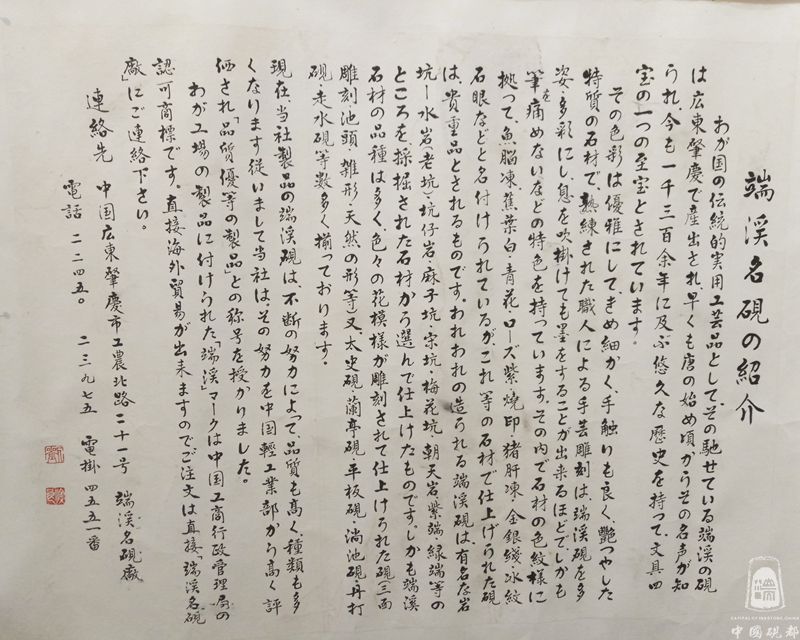 端渓名硯の紹介
わが国の伝統的実用工芸品として、その馳せている端渓の硯
は広東肇慶で産出され、早くも唐の始め頃からその名声が知
られ、今も一千三百余年に及ぶ悠久な歴史を持って、文具四
宝の一つの至宝とされています。
その色彩は優雅にして、きめ細かく、手触りも良く、艶つやした
特質の石材で、熟練された職人による手芸雕刻は、端渓硯を多
姿・多彩にし、息を吹掛けても墨をすることが出来るほどで、しかも
筆を痛めないなどの特色を持っています。その内で石材の色紋様に
拠って、魚脳凍・蕉葉白・青花・ローズ紫・燒印・猪肝凍・金銀綫・氷紋
石眼などと名付けられているが、これ等の石材で仕上げられた硯
は、貴重品とされるものです。われわれの造られる端渓硯は、有名な岩
坑―水岩(老坑)・坑仔岩・麻子坑・宋坑・梅花坑・朝天岩・紫端・緑端等の
ところを採掘された石材から選んで仕上げたものです。しかも端渓
石材の品種は多く、色々の花模様が雕刻されて仕上げられた硯(三面
雕刻池頭、雑形・天然の形等)又、太史硯・蘭亭硯・平板硯・淌池硯・丹打
硯・走水硯等数多く揃っております。
現在、当社製品の端渓硯は、不断の努力によって、品質も高く、種類も多
くなります従いまして当社は、その努力を中国軽工業部から高く評
価され「品質優等の製品」との称号を授かりました。
わが工場の製品に付けられた「端渓」マークは中国工商行政管理局の
認可商標です。直接海外貿易が出来ますのでご注文は直接、「端渓名硯
廠」にご連絡下さい。
連絡先 中国広東肇慶市工農北路二十一号 端渓名硯廠
電話 二二四五。 二三九七五 電掛 四五五一番
CAPITAL OF INKSTONE, CHINA
中國硯都